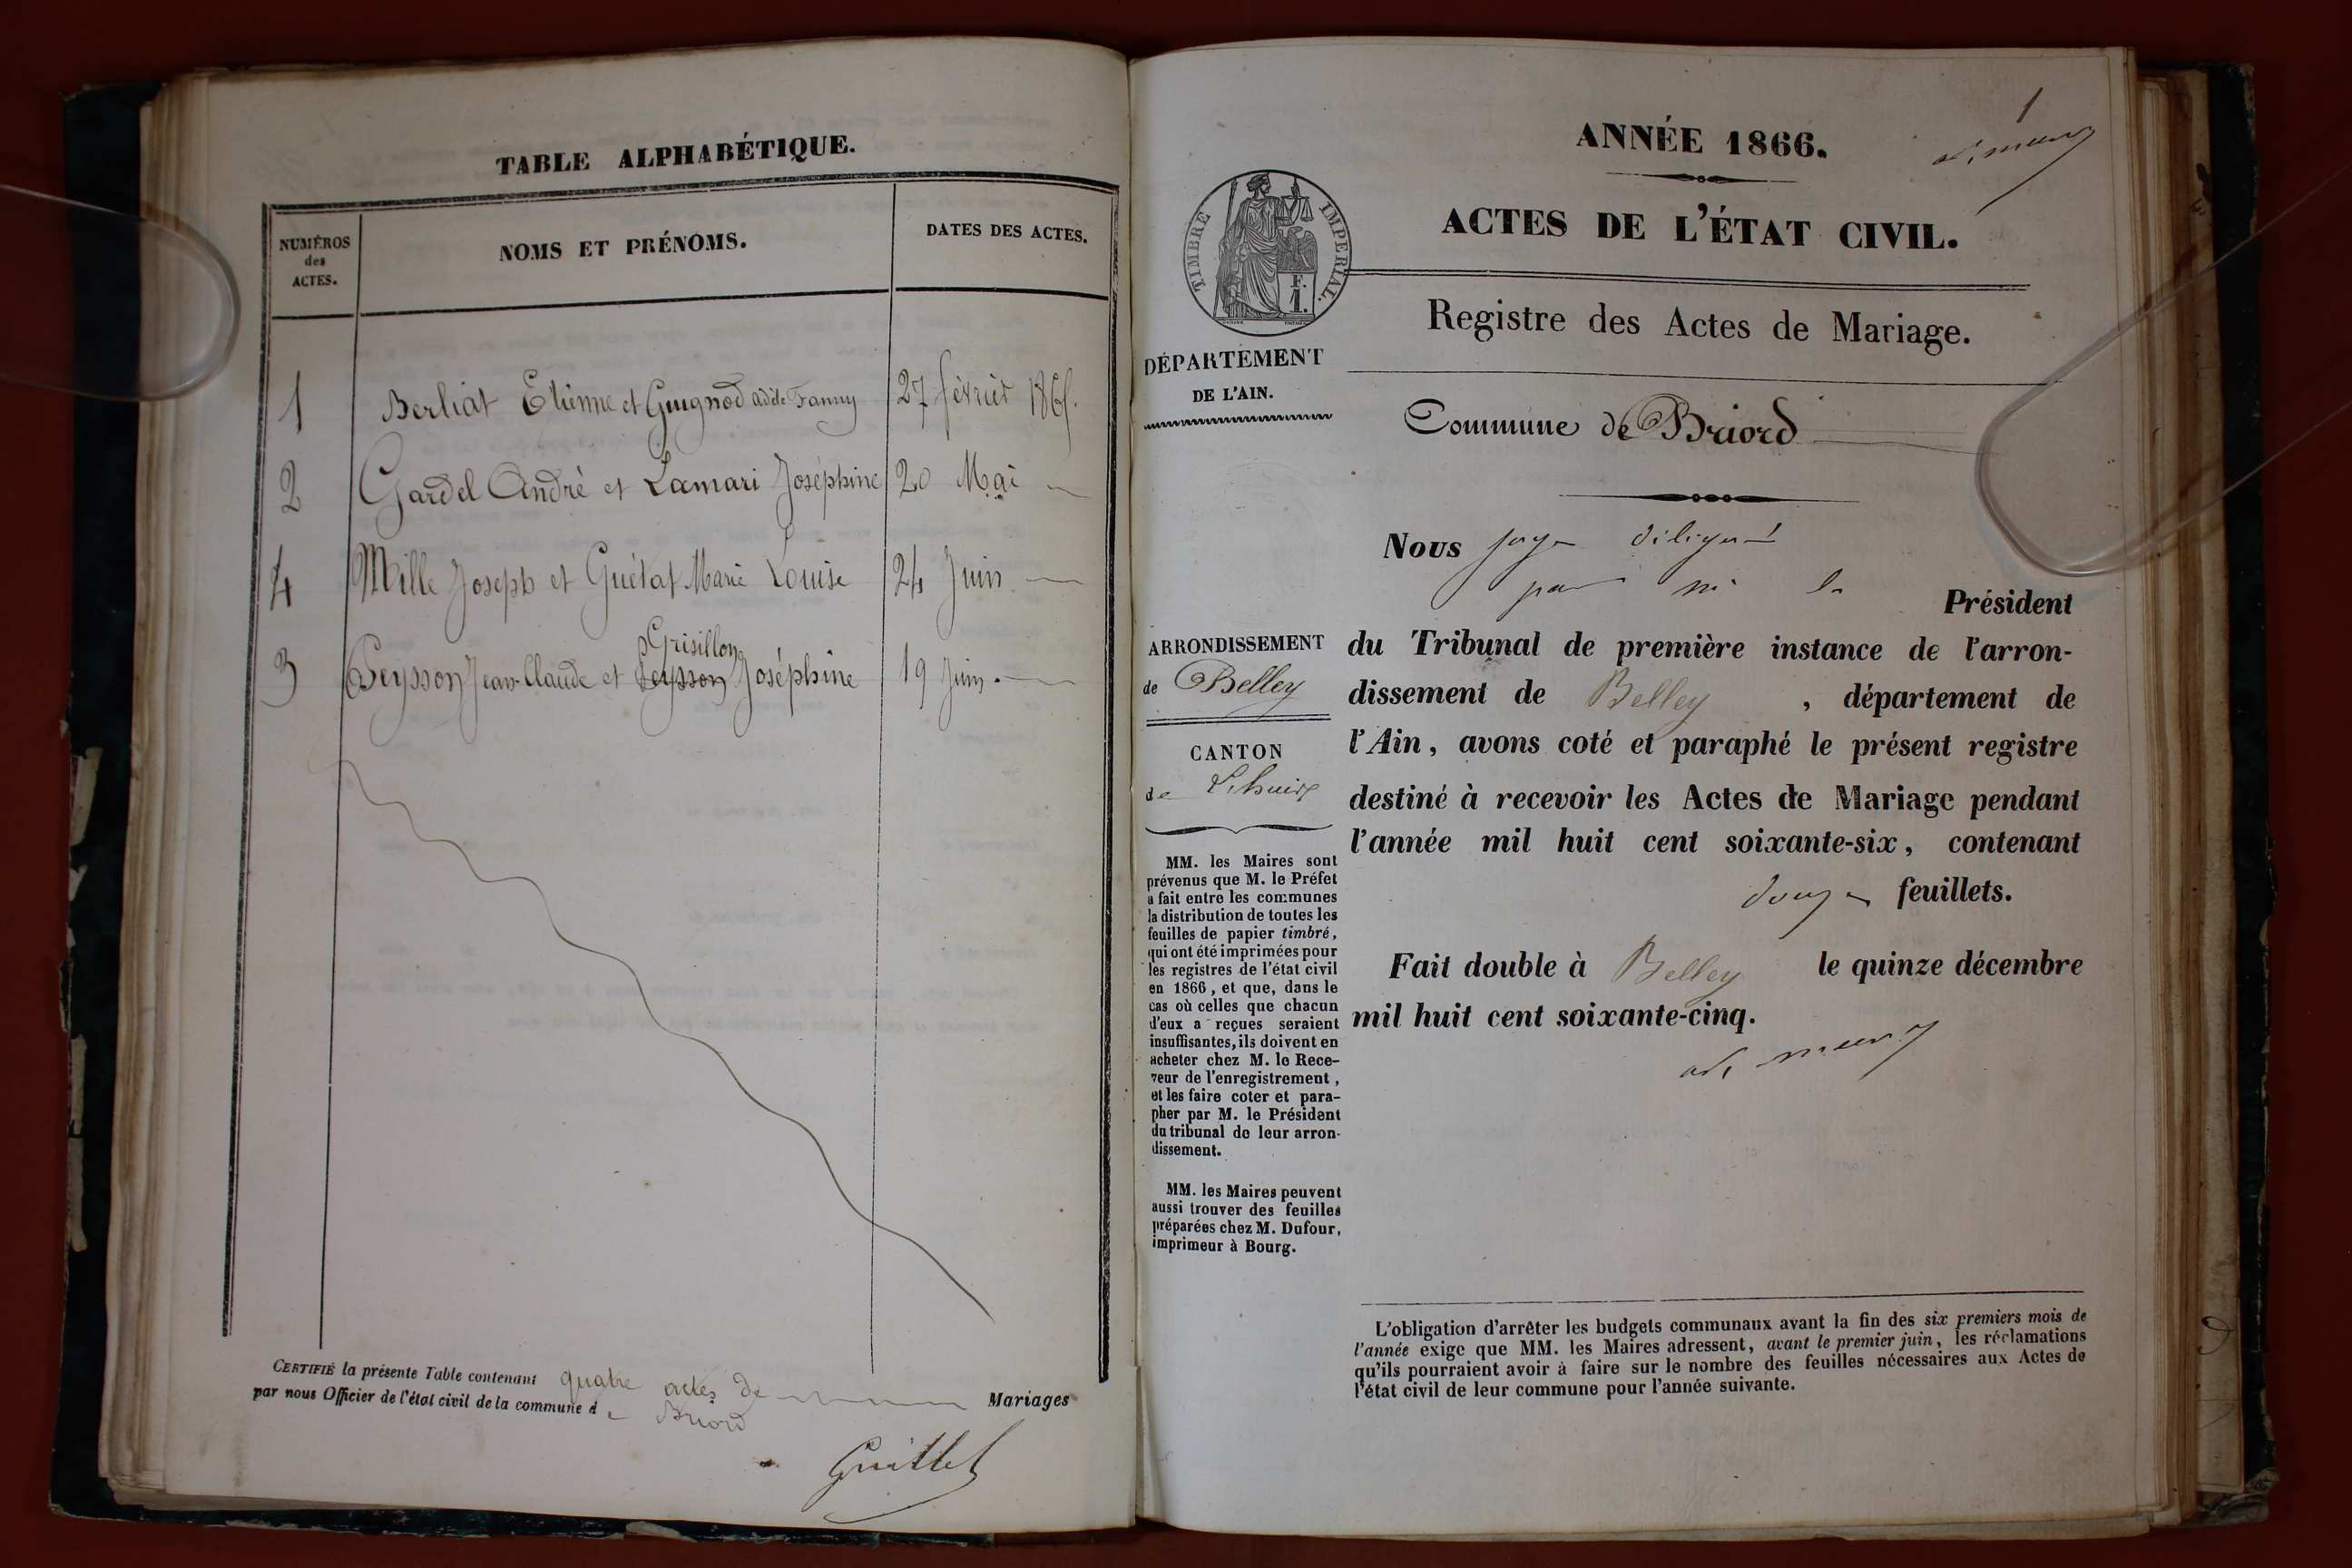 TABLE ALPHABÉTIQUE.
NUMÉROS
des
ACTES.
NOMS ET PRÉNOMS.
DATES DES ACTES.
1 Berliat Etienne et Guignod adèle Fanny 27 février 1865.
2 Gardel André et Lamari Joséphine 20 Mai
4 Mille Joseph et Guétat Marie Louise 24 Juin
Grisillon
3 Peysson Jean-Claude et Peysson Joséphine 19 Juin.
CERTIFIÉ la présente Table contenant quatre actes de Mariages
par nous Officier de l'état civil de la commune d e Briord
Guittet
1
ANNÉE 1866.
ACTES DE L'ÉTAT CIVIL.
TIMBRE IMPERIAL.
F.
1.
Registre des Actes de Mariage.
DÉPARTEMENT
DE L'AIN.
Commune de Briord
ARRONDISSEMENT
de Belley
CANTON
de Lhuis
MM. les Maires sont
prévenus que M. le Préfet
a fait entre les communes
la distribution de toutes les
feuilles de papier timbré,
qui ont été imprimées pour
les registres de l'état civil
en 1866, et que, dans le
cas où celles que chacun
d'eux a reçues seraient
insuffisantes, ils doivent en
acheter chez M. le Rece-
veur de l'enregistrement,
et les faire coter et para-
pher par M. le Président
du tribunal de leur arron-
dissement.
MM. les Maires peuvent
aussi trouver des feuilles
préparées chez M. Dufour,
imprimeur à Bourg.
Nous juge délégué
par m. le Président
du Tribunal de première instance de l'arron-
dissement de Belley, département de
l'Ain, avons coté et paraphé le présent registre
destiné à recevoir les Actes de Mariage pendant
l'année mil huit cent soixante-six, contenant
douze feuillets.
Fait double à Belley le quinze décembre
mil huit cent soixante-cinq.
L'obligation d'arrêter les budgets communaux avant la fin des six premiers mois de
l'année exige que MM. les Maires adressent, avant le premier juin, les réclamations
qu'ils pourraient avoir à faire sur le nombre des feuilles nécessaires aux Actes de
l'état civil de leur commune pour l'année suivante.